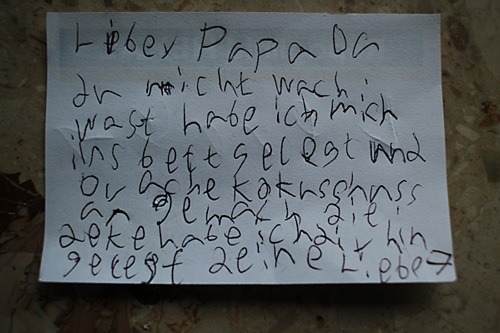 Lieber Papa Da
du nicht wach
wast habe ich mich
ins bett gelegt und
Drache kokuschnuss
an gemach die
deke habe ich dir hin
gelegt deine Liebe